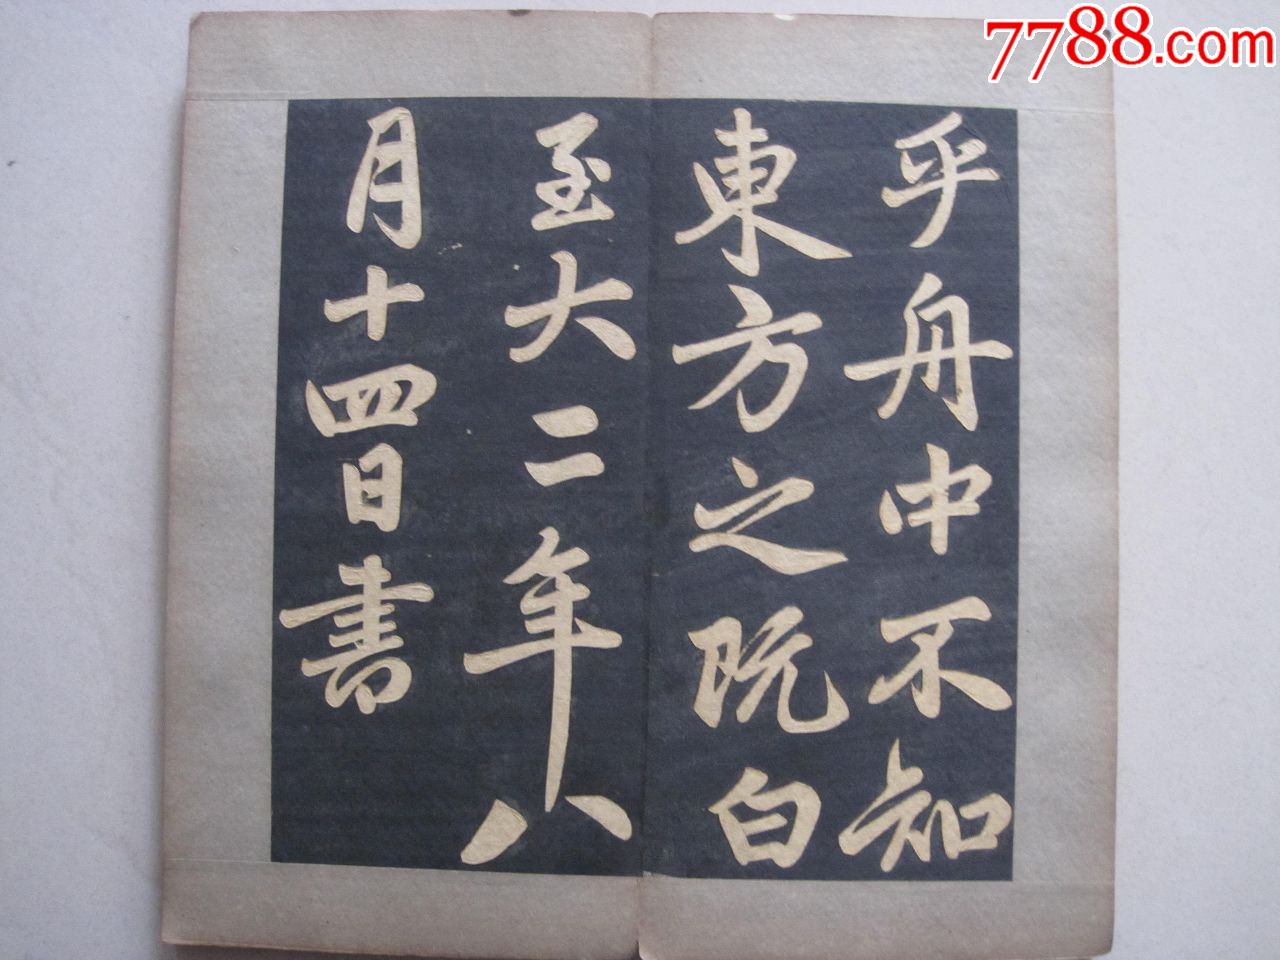 7788.com
乎舟中不知
東方之既白
至大二年八
月十四日書